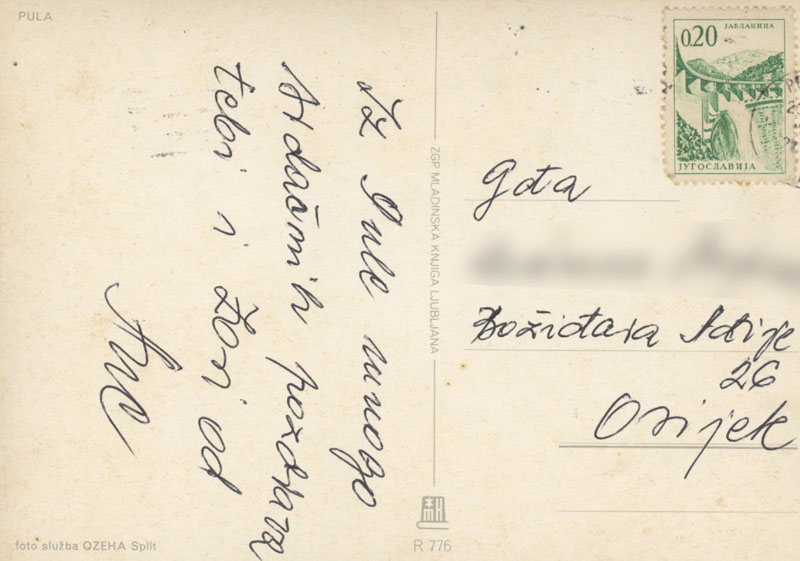 PULA
Iz Pule mnogo
srdačnih pozdrava
tebi i Žori od
Ane
ZGP MLADINSKA KNJIGA LJUBLJANA
0.20
ЈАБЛАНИЦА
ЈУГОСЛАВИЈА
Gđa
Božidara Adžije
26
Osijek
foto služba OZEHA Split
MK
R 776